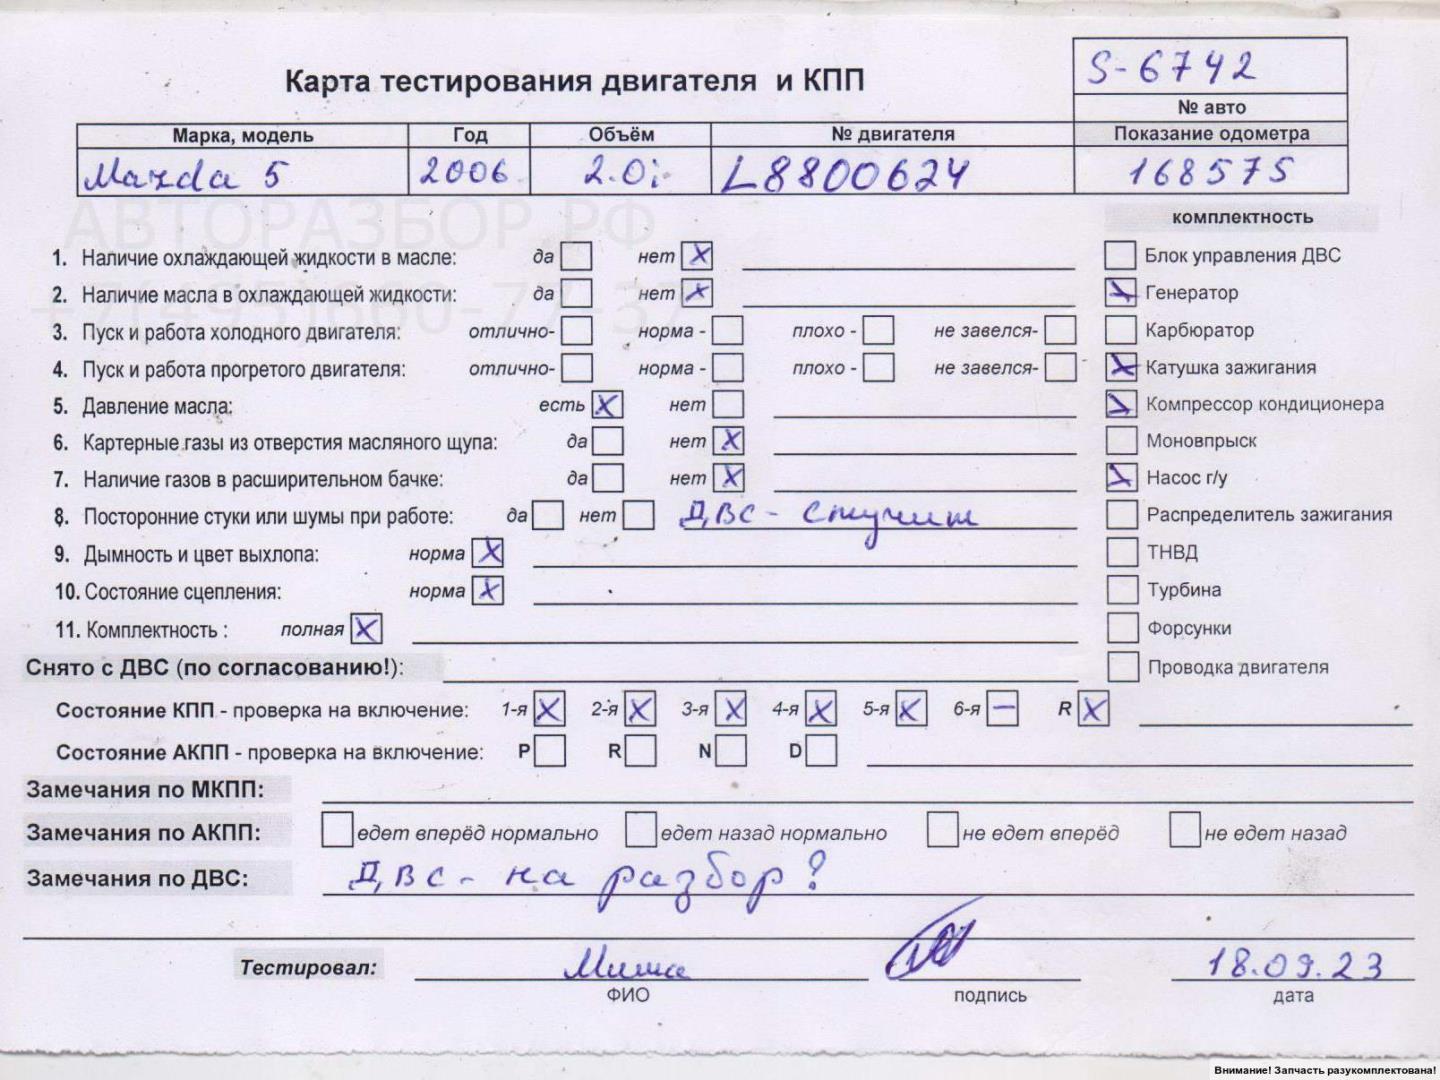 S-6742
Карта тестирования двигателя и КПП
№ авто
Марка, модель Год Объём № двигателя Показание одометра
Mazda 5 2006 2.0i L8800624 168575
АВТОРАЗБОР.РФ
комплектность
1. Наличие охлаждающей жидкости в масле: да нет X Блок управления ДВС
+7(495)660-77-37
2. Наличие масла в охлаждающей жидкости: да нет X Генератор
3. Пуск и работа холодного двигателя: отлично- норма - плохо - не завелся- Карбюратор
4. Пуск и работа прогретого двигателя: отлично- норма - плохо - не завелся- Катушка зажигания
5. Давление масла: есть X нет Компрессор кондиционера
6. Картерные газы из отверстия масляного щупа: да нет X Моновпрыск
7. Наличие газов в расширительном бачке: да нет X Насос г/у
8. Посторонние стуки или шумы при работе: да нет ДВС - стучит Распределитель зажигания
9. Дымность и цвет выхлопа: норма X ТНВД
10. Состояние сцепления: норма X Турбина
11. Комплектность : полная X Форсунки
Снято с ДВС (по согласованию!): Проводка двигателя
Состояние КПП - проверка на включение: 1-я X 2-я X 3-я X 4-я X 5-я X 6-я – R X
Состояние АКПП - проверка на включение: P R N D
Замечания по МКПП:
Замечания по АКПП: едет вперёд нормально едет назад нормально не едет вперёд не едет назад
Замечания по ДВС: ДВС - на разбор?
Тестировал: Миша 18.09.23
ФИО подпись дата
Внимание! Запчасть разукомплектована!